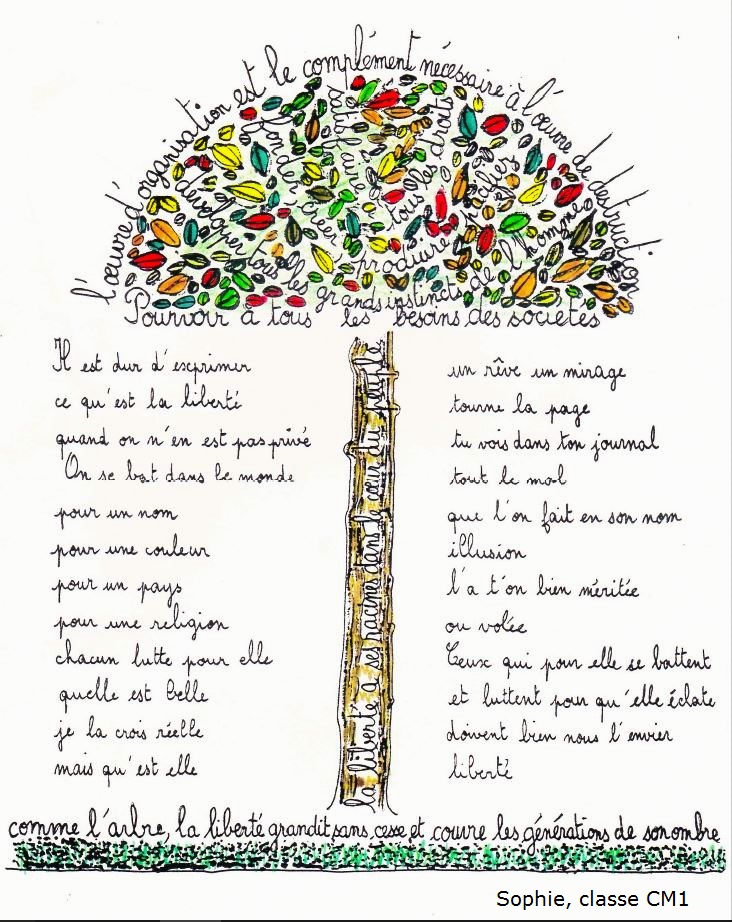 l'œuvre d'organisation est le complément nécessaire à l'œuvre de destruction
fonder
tous les droits
créer
produire
développer tous les grands instincts de l'homme
Pourvoir à tous les besoins des sociétés
Il est dur d'exprimer
ce qu'est la liberté
quand on n'en est pas privé
On se bat dans le monde
pour un nom
pour une couleur
pour un pays
pour une religion
chacun lutte pour elle
quelle est belle
je la crois réelle
mais qu'est elle
la liberté a ses racines dans le cœur du peuple
un rêve un mirage
tourne la page
tu vois dans ton journal
tout le mal
que l'on fait en son nom
illusion
l'a t'on bien méritée
ou volée
Ceux qui pour elle se battent
et luttent pour qu'elle éclate
doivent bien nous l'envier
liberté
comme l'arbre, la liberté grandit sans cesse et couvre les générations de son ombre
Sophie, classe CM1